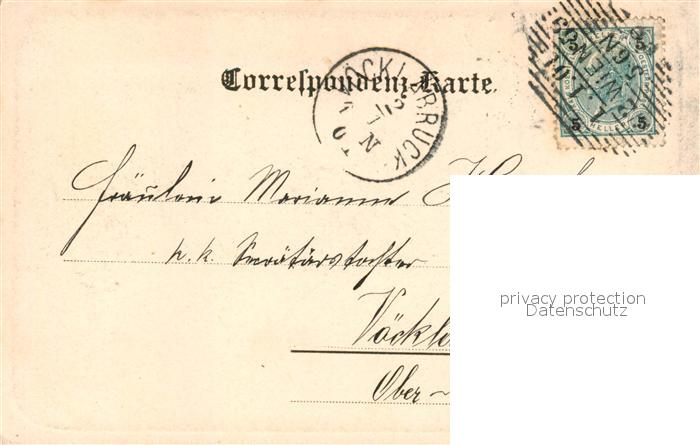 Correspondenz-Karte.
VÖCKLABRUCK
5
5 HELLER 5
Fräulein Marianne
k. k. Secretärstochter
Vöckla
Ober-
privacy protection
Datenschutz